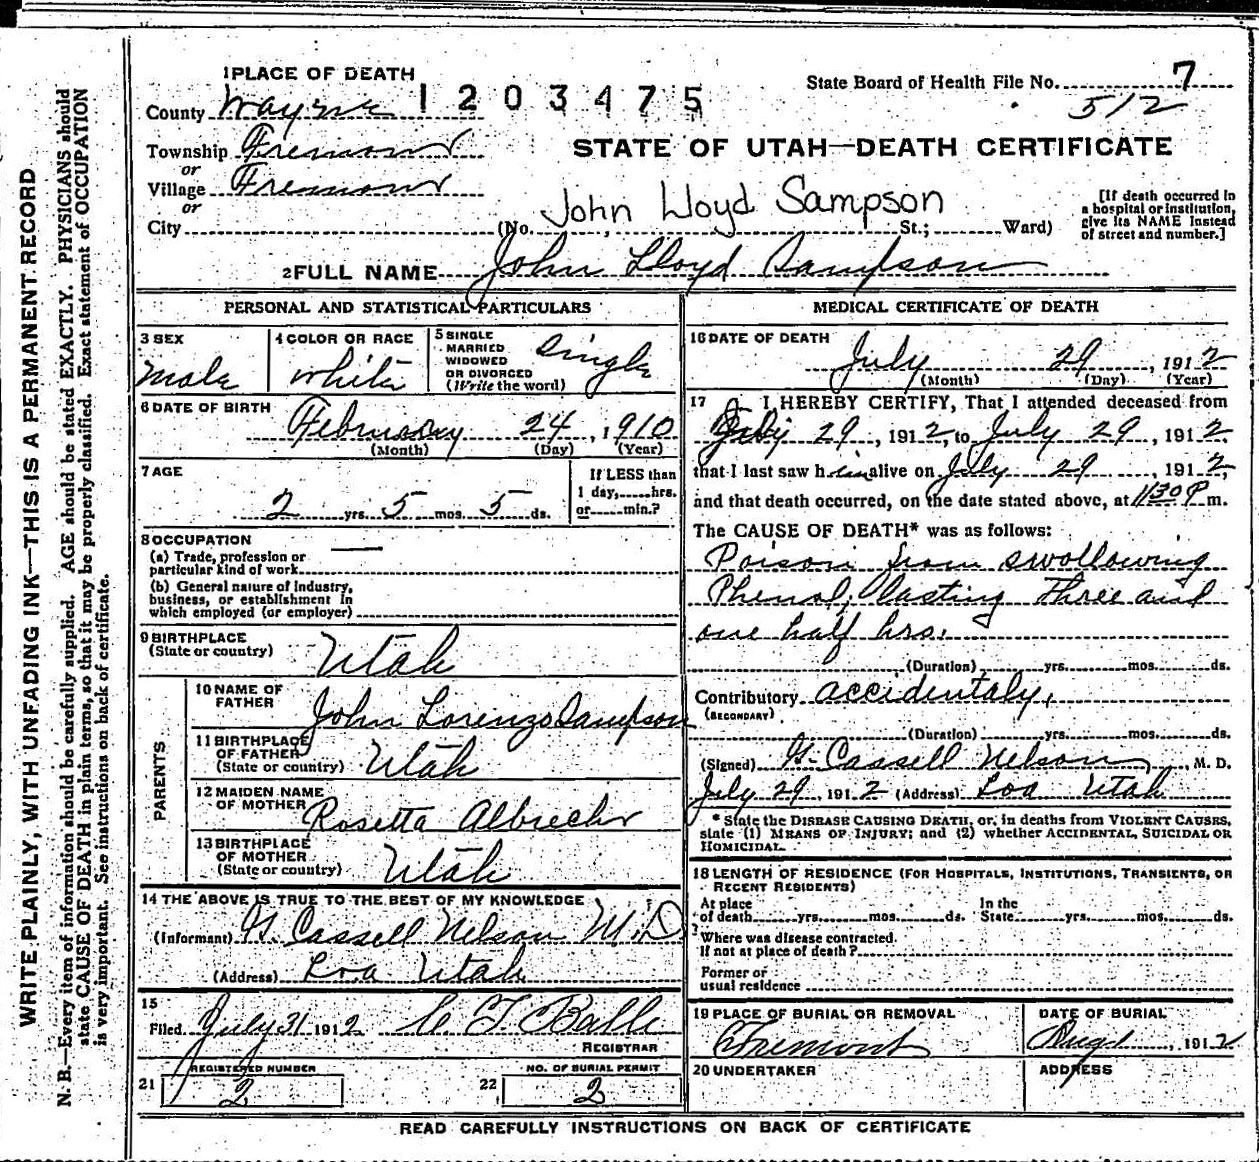 1 PLACE OF DEATH
1203475
State Board of Health File No. 7
512
County Wayne
Township Fremont
or
Village Fremont
or
City
STATE OF UTAH—DEATH CERTIFICATE
John Lloyd Sampson
(No. St.; Ward)
[If death occurred in
a hospital or institution,
give its NAME instead
of street and number.]
2 FULL NAME John Lloyd Sampson
PERSONAL AND STATISTICAL PARTICULARS
3 SEX
Male
4 COLOR OR RACE
White
5 SINGLE
MARRIED
WIDOWED
OR DIVORCED
(Write the word)
Single
6 DATE OF BIRTH
February 24, 1910
(Month) (Day) (Year)
7 AGE
2 yrs. 5 mos. 5 ds.
If LESS than
1 day, hrs.
or min.?
8 OCCUPATION
(a) Trade, profession or
particular kind of work
(b) General nature of industry,
business, or establishment in
which employed (or employer)
9 BIRTHPLACE
(State or country)
Utah
PARENTS
10 NAME OF
FATHER
John Lorenzo Sampson
11 BIRTHPLACE
OF FATHER
(State or country)
Utah
12 MAIDEN NAME
OF MOTHER
Rosetta Albrecht
13 BIRTHPLACE
OF MOTHER
(State or country)
Utah
14 THE ABOVE IS TRUE TO THE BEST OF MY KNOWLEDGE
(Informant) G. Cassell Nelson M.D
(Address) Loa Utah
15
Filed July 31 1912
REGISTRAR
REGISTERED NUMBER
21 2
NO. OF BURIAL PERMIT
22 2
MEDICAL CERTIFICATE OF DEATH
16 DATE OF DEATH
July 29, 1912
(Month) (Day) (Year)
17 I HEREBY CERTIFY, That I attended deceased from
July 29, 1912, to July 29, 1912,
that I last saw him alive on July 29, 1912,
and that death occurred, on the date stated above, at 1130 P m.
The CAUSE OF DEATH* was as follows:
Poison from swollowing
Phenol, lasting three and
one half hrs.
(Duration) yrs. mos. ds.
Contributory accidentaly.
(SECONDARY)
(Duration) yrs. mos. ds.
(Signed) G. Cassell Nelson, M. D.
July 29, 1912 (Address) Loa Utah
* State the DISEASE CAUSING DEATH, or, in deaths from VIOLENT CAUSES,
state (1) MEANS OF INJURY; and (2) whether ACCIDENTAL, SUICIDAL OR
HOMICIDAL.
18 LENGTH OF RESIDENCE (FOR HOSPITALS, INSTITUTIONS, TRANSIENTS, OR
RECENT RESIDENTS)
At place
of death yrs. mos. ds.
In the
State yrs. mos. ds.
Where was disease contracted.
If not at place of death?
Former or
usual residence
19 PLACE OF BURIAL OR REMOVAL
Fremont
DATE OF BURIAL
Aug 1, 1912
20 UNDERTAKER
ADDRESS
READ CAREFULLY INSTRUCTIONS ON BACK OF CERTIFICATE
WRITE PLAINLY, WITH UNFADING INK—THIS IS A PERMANENT RECORD
N. B.—Every item of information should be carefully supplied. AGE should be stated EXACTLY. PHYSICIANS should
state CAUSE OF DEATH in plain terms, so that it may be properly classified. Exact statement of OCCUPATION
is very important. See instructions on back of certificate.